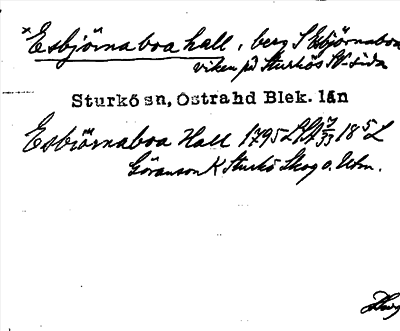 * Esbjörnaboa hall, berg S Esbjörnaboa
viken på Sturkös N-sida
Sturkö sn, Östra hd Blek. län
Esbiörnaboa Hall 1795 L 7/33 18 5 L
Göranson K Sturkö Skog o. Utm.